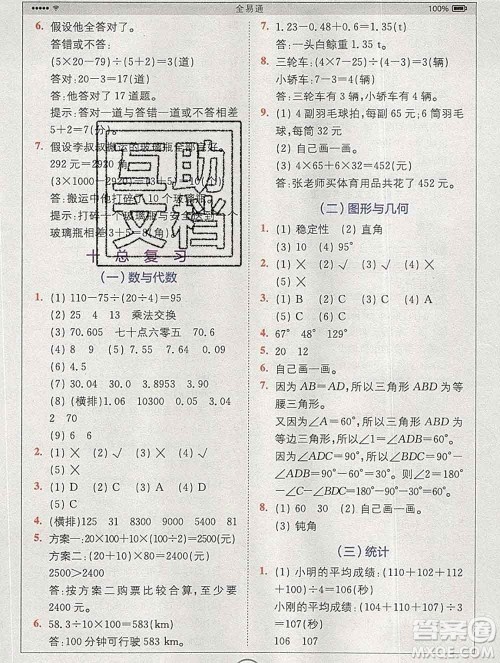 全易通
100%
6. 假设他全答对了。
答错或不答：
(5×20-79)÷(5+2)=3(道)
答对：20-3=17(道)
答：他答对了17道题。
提示：答对一道与答错一道或不答相差
5+2=7(分)。
7. 假设李叔叔搬运的玻璃瓶全部完好。
292元=2920角
(3×1000-2920)÷(3+5)=10(个)
答：搬运中他打碎了10个玻璃瓶。
提示：打碎一个玻璃瓶与安全运到一个
玻璃瓶相差3+5=8(角)。
十 总复习
(一)数与代数
1. (1) 110-75÷(20÷4)=95
(2) 25 4 13 乘法交换
(3) 70.605 七十点六零五 70.61
(4) 8 9 (5) 4.24 4.15
(6) 4.5
(7) 0.0384 3.8 3.0953
(8) (横排)1.06 1.038 0.07 0.11
2 70
(9) 6.02
2. (1) × (2) × (3) × (4) √
(5) ×
3. (1) D (2) C (3) A (4) C
(5) C
4. (横排)125 31 8300 9000 5400 81
5. 方案一：20×100+10×50=2500(元)
方案二：(20+10)×80=2400(元)
2500>2400
答：按方案二购票比较合算，至少要
2400元。
6. 58.3÷10×100=583(km)
答：100分钟可行驶583 km。
7. 1.23-0.48+0.6=1.35(t)
答：一头白鲸重1.35 t。
8. 三轮车：(4×7-25)÷(4-3)=3(辆)
小轿车：7-3=4(辆)
答：三轮车有3辆，小轿车有4辆。
9. (1) 4副羽毛球拍；(1副羽毛球拍，6筒羽毛
球，共花了324元)
(2) 自己画一画。
(3) 4×65+6×32=452(元)
答：张老师买体育用品共花了452元。
(二)图形与几何
1. (1) 稳定性 (2) 直角
2. (1) × (2) √ (3) √ (4) ×
(5) ×
3. (1) B (2) C (3) A (4) C
4. 67° 48° 129°
5. 20 12
6. 自己画一画。
7. 因为AB=AD，所以三角形ABD为等
腰三角形。
又因为∠A=60°，所以三角形ABD为
等边三角形，所以∠ABD=60°，所以
∠BDC=180°-60°=120°，∠DBC=
90°-60°=30°，则∠C=180°-90°-
∠A=90°-60°=30°
8. (1) 01 10 21 (2) 自己画一画。
(3) 钝角
(三)统计
1. (1) 小明的平均成绩：(110+102+112+
94+112)÷5=106(下)
小刚的平均成绩：(104+106+111)÷3
=107(下)
106 107
互助
文档
答案圈
MXQE.COM